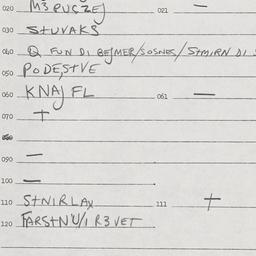 020 M3 PUSZEJ 021 —
030 StUVAKS
040 Q FUN DI BEJMER/SOSNES/StMIRN DI S
050 PODESTVE
060 KNAJ FL 061 —
070 +
080
090 —
100 —
110 StNIRLAX 111 +
120 FARStNU/I R3VET